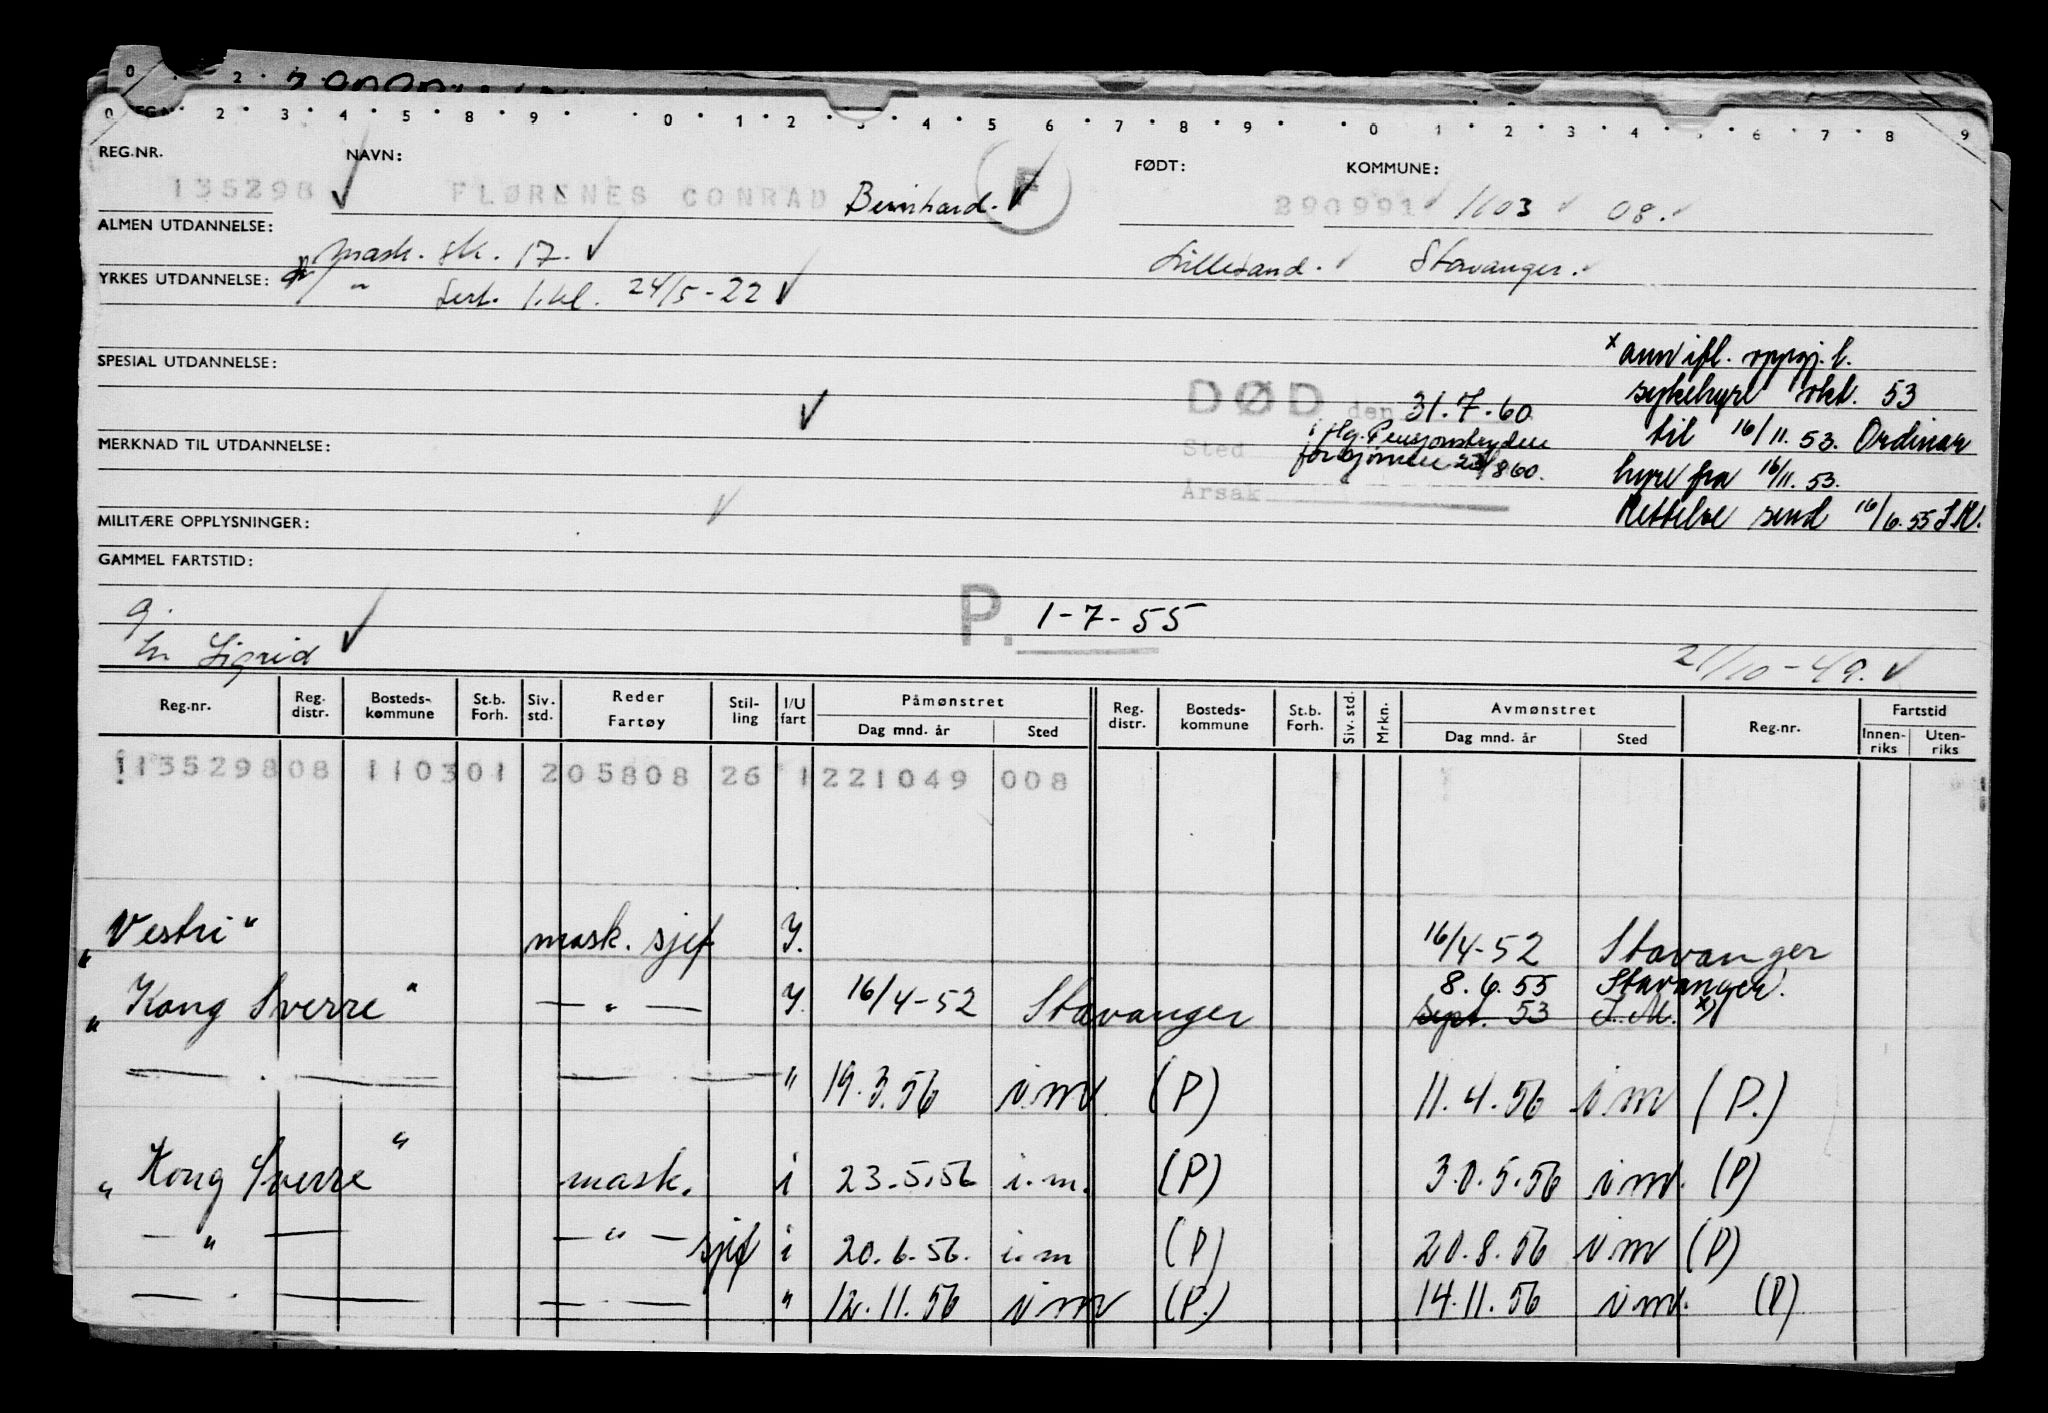 REG.NR. NAVN: FØDT: KOMMUNE:
135298 FLØRENES CONRAD Bernhard. F 290991 1103 08.
ALMEN UTDANNELSE: mask. sk. 17. Lillesand. Stavanger.
YRKES UTDANNELSE: " Sert. 1. kl. 24/5-22
SPESIAL UTDANNELSE:
x ann ifl. oppgj. f.
sykehyre okt. 53
til 16/11.53. Ordinær
hyre fra 16/11.53.
Rettelse send 16/6.55 S.M.
DØD den 31.7.60
i flg. Pensjonstrygden
Sted for sjømenn 23/8 60.
Årsak
MERKNAD TIL UTDANNELSE:
MILITÆRE OPPLYSNINGER:
GAMMEL FARTSTID:
P. 1-7-55
g.
m Sigrid 21/10-49.
Reg.nr. Reg. distr. Bosteds-kommune St.b. Forh. Siv. std. Reder Fartøy Stil-ling I/U fart Påmønstret Dag mnd. år Sted Reg. distr. Bosteds-kommune St.b. Forh. Siv. std. Mrkn. Avmønstret Dag mnd. år Sted Reg.nr. Fartstid Innen-riks Uten-riks
13529808 110301 205808 26 1221049 008
"Vestri" mask. sjef. I. 16/4-52 Stavanger
8.6.55 Stavanger.
"Kong Sverre" — " — I. 16/4-52 Stavanger sept. 53 S.M. x)
— " — — " — " 19.3.56 i.m. (P) 11.4.56 i.m (P.)
"Kong Sverre" mask. i 23.5.56 i.m. (P) 30.5.56 i.m. (P)
— " — — " — sjef i 20.6.56. i.m (P) 20.8.56 i.m (P)
— " — — " — " 12.11.56 i.m (P.) 14.11.56 i.m. (P)